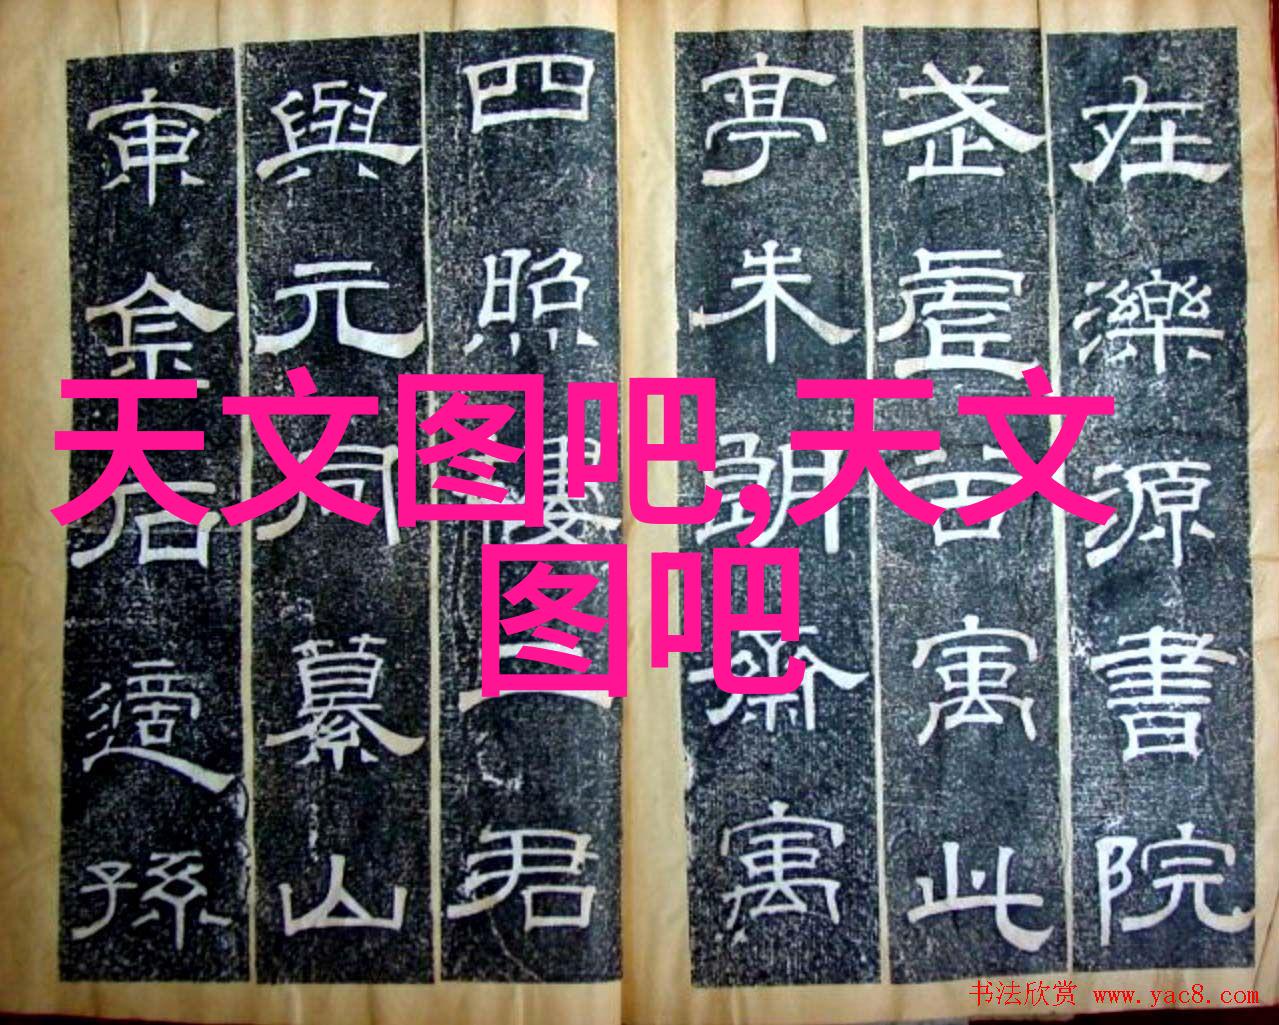 在濼源書院
武虛谷寓此
亭朱朗齋寓
四照樓二君
與元同纂山
東金石適孫
天文图吧,天文
图吧
书法欣赏 www.yac8.com